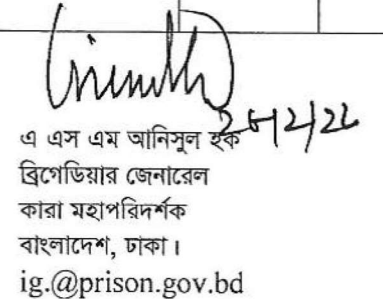 এ এস এম আনিসুল হক
ব্রিগেডিয়ার জেনারেল
কারা মহাপরিদর্শক
বাংলাদেশ, ঢাকা।
ig.@prison.gov.bd